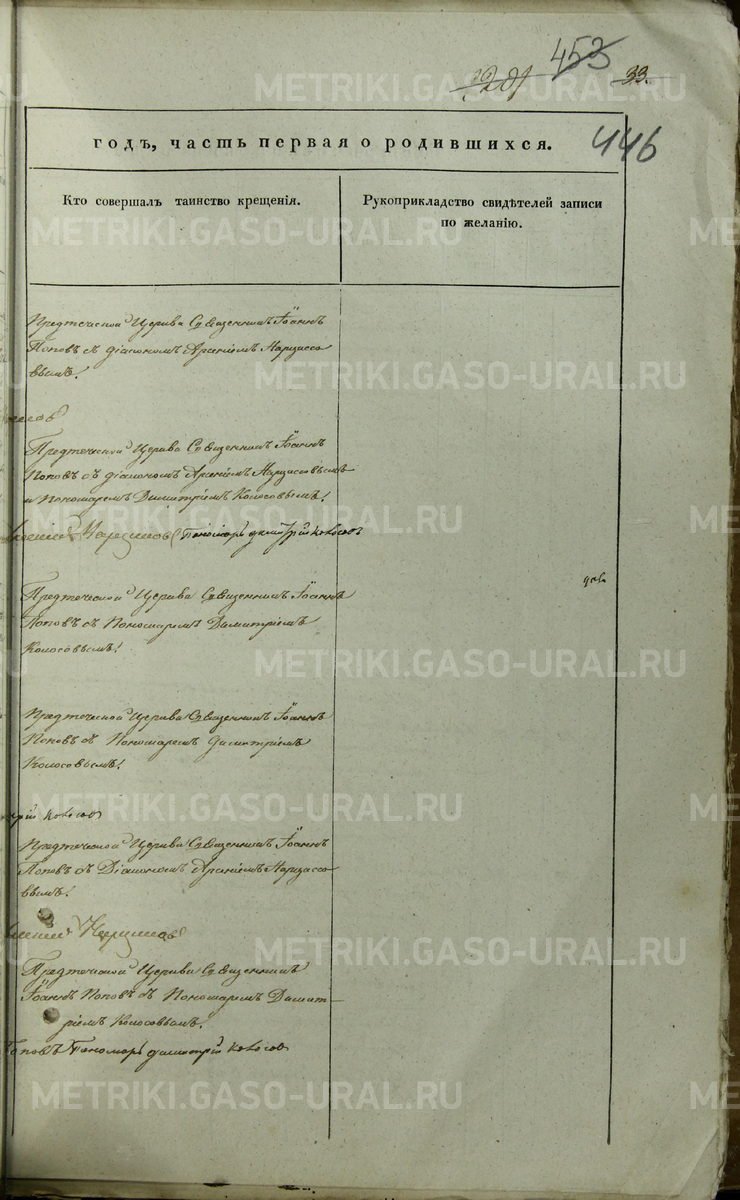 453
33.
446
годъ, часть первая о родившихся.
Кто совершалъ таинство крещенія.
Рукоприкладство свидѣтелей записи
по желанію.
Предтеческой Церкви Священникъ Іоаннъ
Поповъ съ діакономъ Арсеніемъ Нарциссо
вымъ.
Предтеческой Церкви Священникъ Іоаннъ
Поповъ съ діакономъ Арсеніемъ Нарциссовымъ
и Пономаремъ Димитріемъ Колосовымъ.
Нарциссовъ Пономарь Димитрій Колосовъ
Предтеческой Церкви Священникъ Іоаннъ
Поповъ съ Пономаремъ Димитріемъ
Колосовымъ.
Предтеческой Церкви Священникъ Іоаннъ
Поповъ съ Пономаремъ Димитріемъ
Колосовымъ.
трій Колосовъ
Предтеческой Церкви Священникъ Іоаннъ
Поповъ съ Діакономъ Арсеніемъ Нарциссо
вымъ.
Нарциссовъ
Предтеческой Церкви Священникъ
Іоаннъ Поповъ съ Пономаремъ Димит-
ріемъ Колосовымъ.
Поповъ Пономарь Димитрій Колосовъ
METRIKI.GASO-URAL.RU